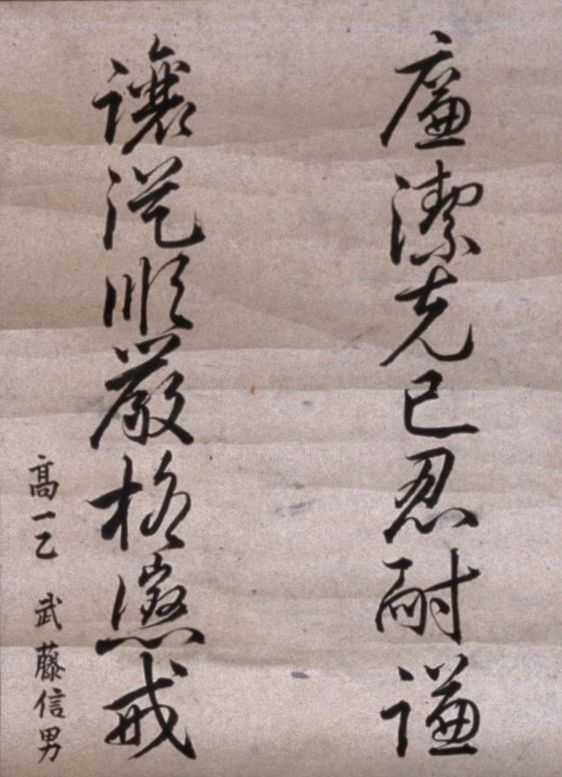 廉潔克己忍耐謙
譲従順厳格懲戒
高一乙 武藤信男